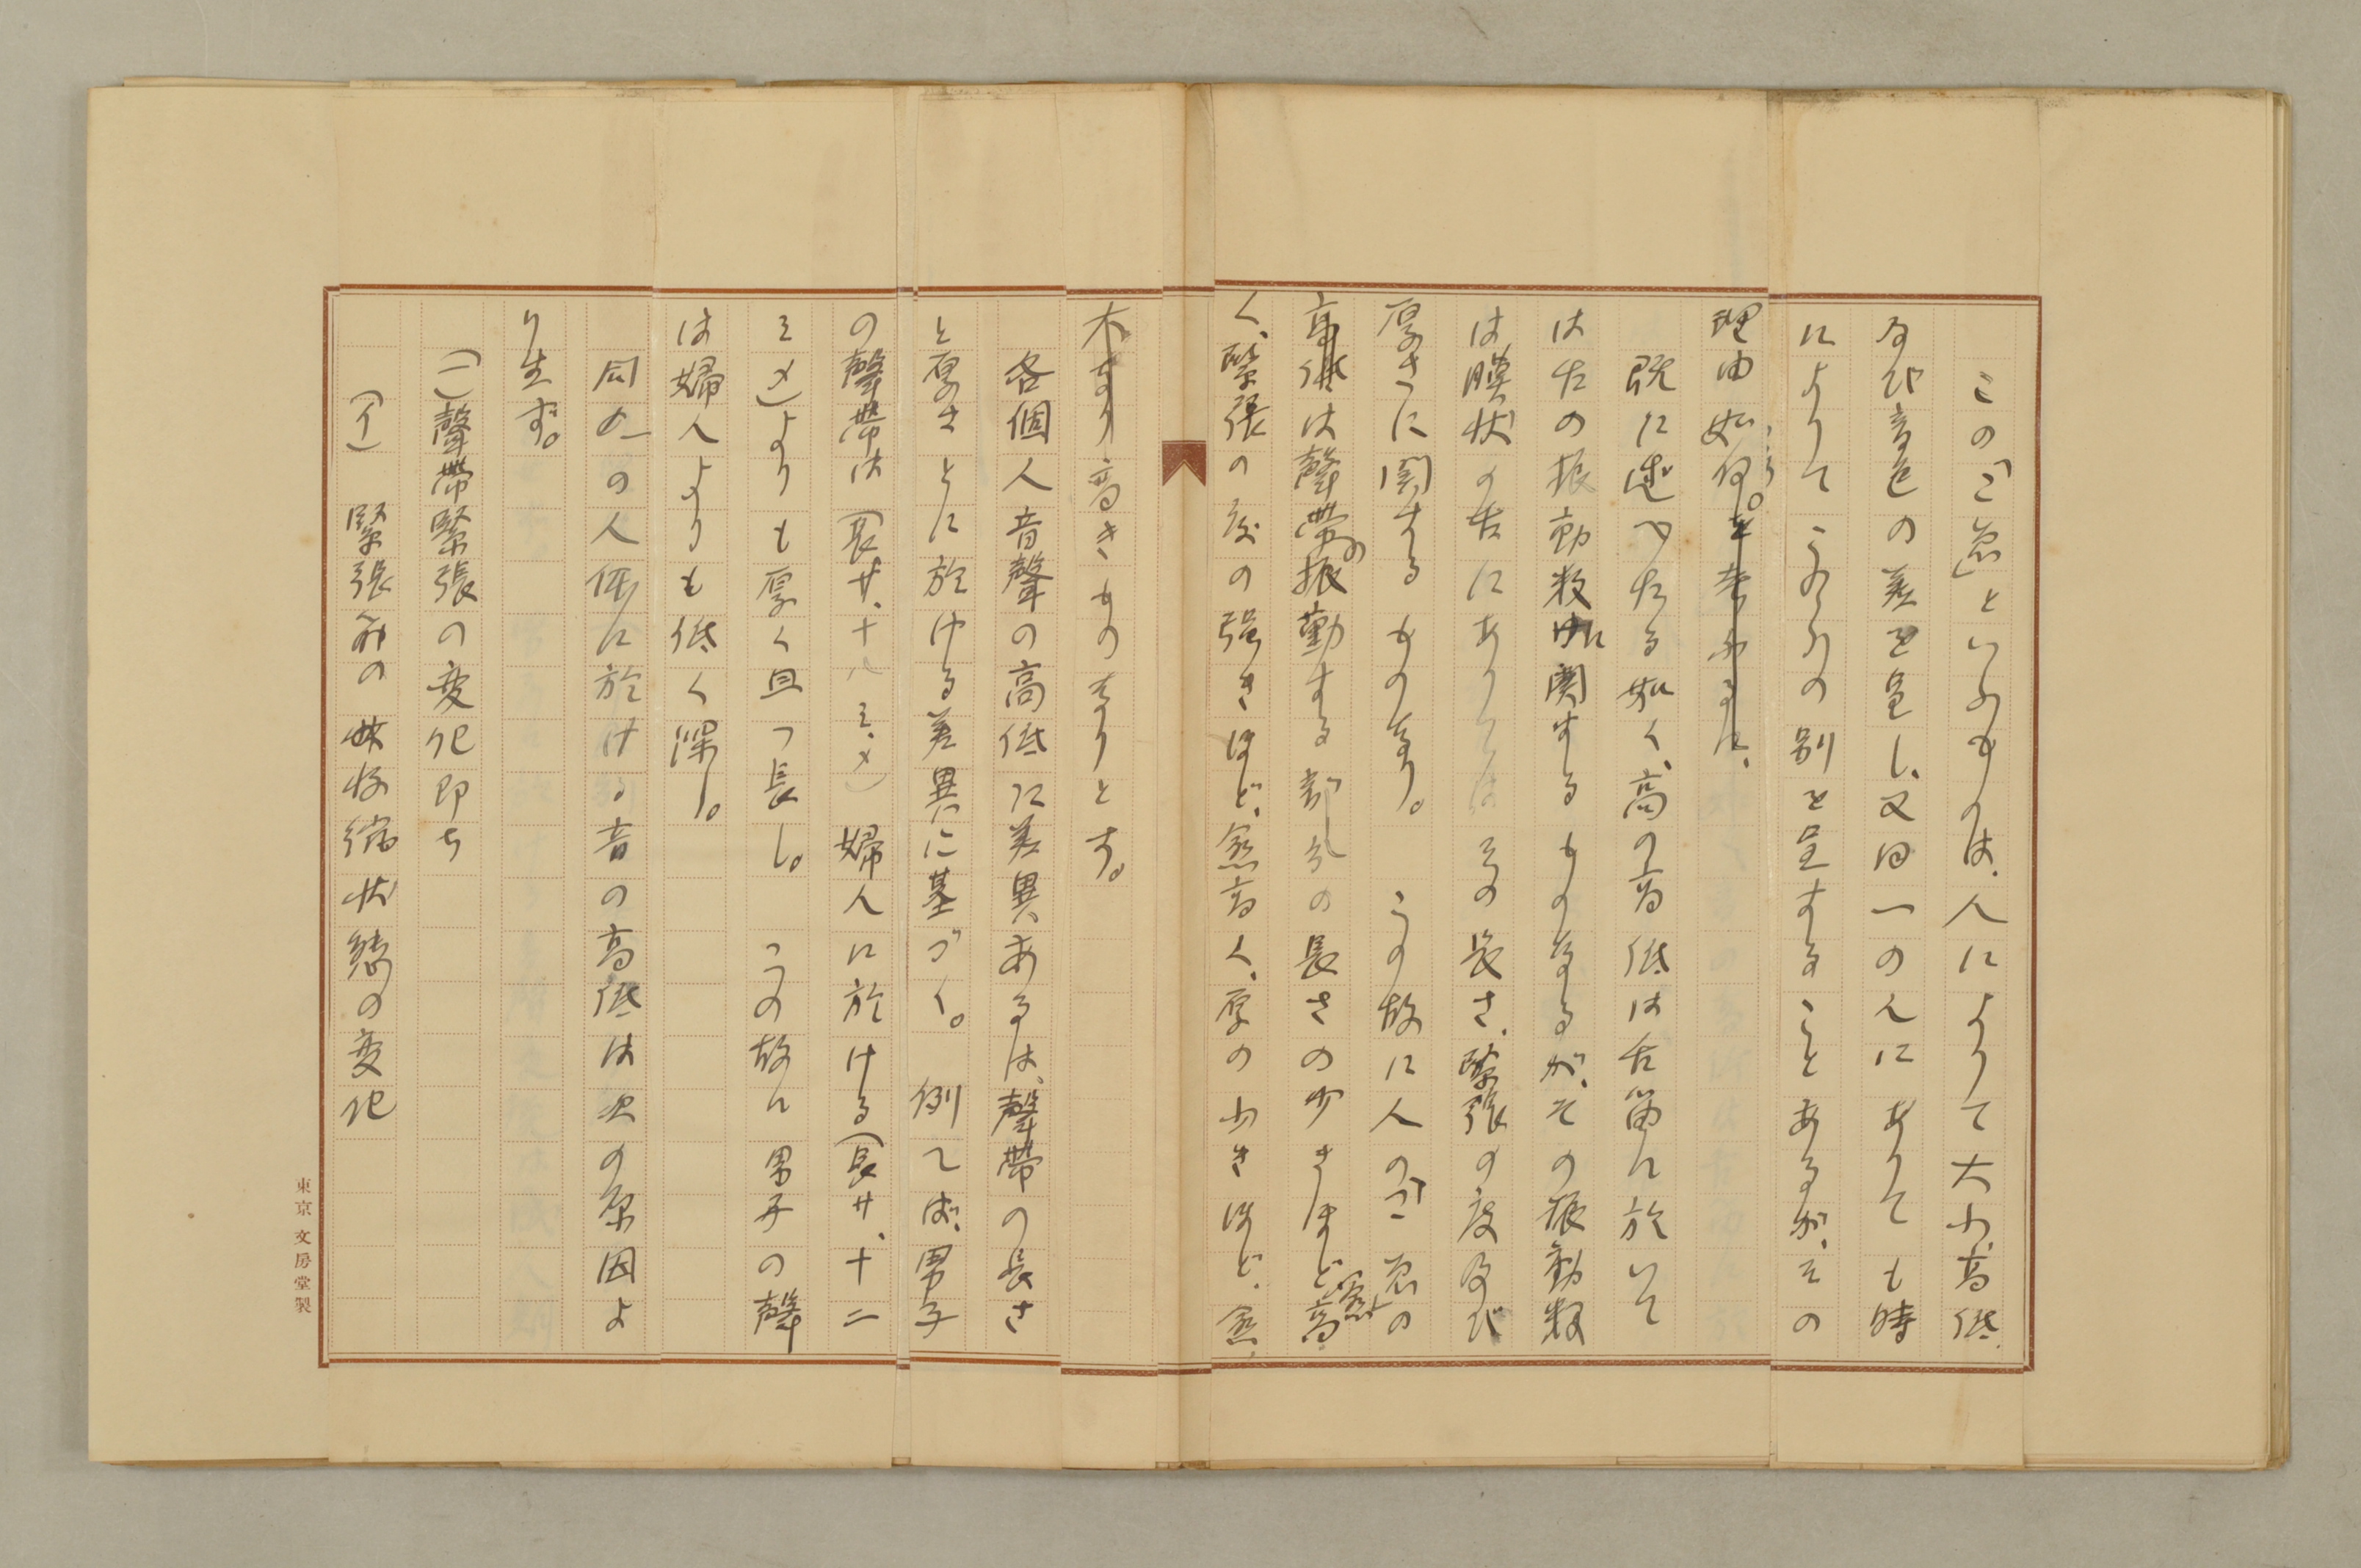 この「こゑ」といふものは、人によりて大小、高低
及び音色の差を呈し、又同一の人にありても時
によりてこれらの別を呈することあるが、その
理由如何。
既に述べたる如く、高の高低は舌笛に於いて
は舌の振動数に関するものなるが、その振動数
は膜状の舌にありてはその長さ、緊張の度及び
厚さに関するものなり。 この故に人の「こゑ」の
高低は聲帶の振動する部分の長さの少きほど愈々高
く、緊張の度の强きほど、愈高く、厚の少きほど、愈
高きものなりとす。
各個人音聲の高低に差異あるは、聲帶の長さ
と厚さとに於ける差異に基づく。 例へば、男子
の聲帶は(長サ、十八ミ、メ)婦人に於ける(長サ、十二
ミメ)よりも厚く且つ長し。 この故に男子の聲
は婦人よりも低く深し。
同一の人体に於ける音の高低は次の原因よ
り生ず。
(一)聲帶緊張の変化即ち
(イ) 緊張筋の收縮状態の変化
東京 文房堂製